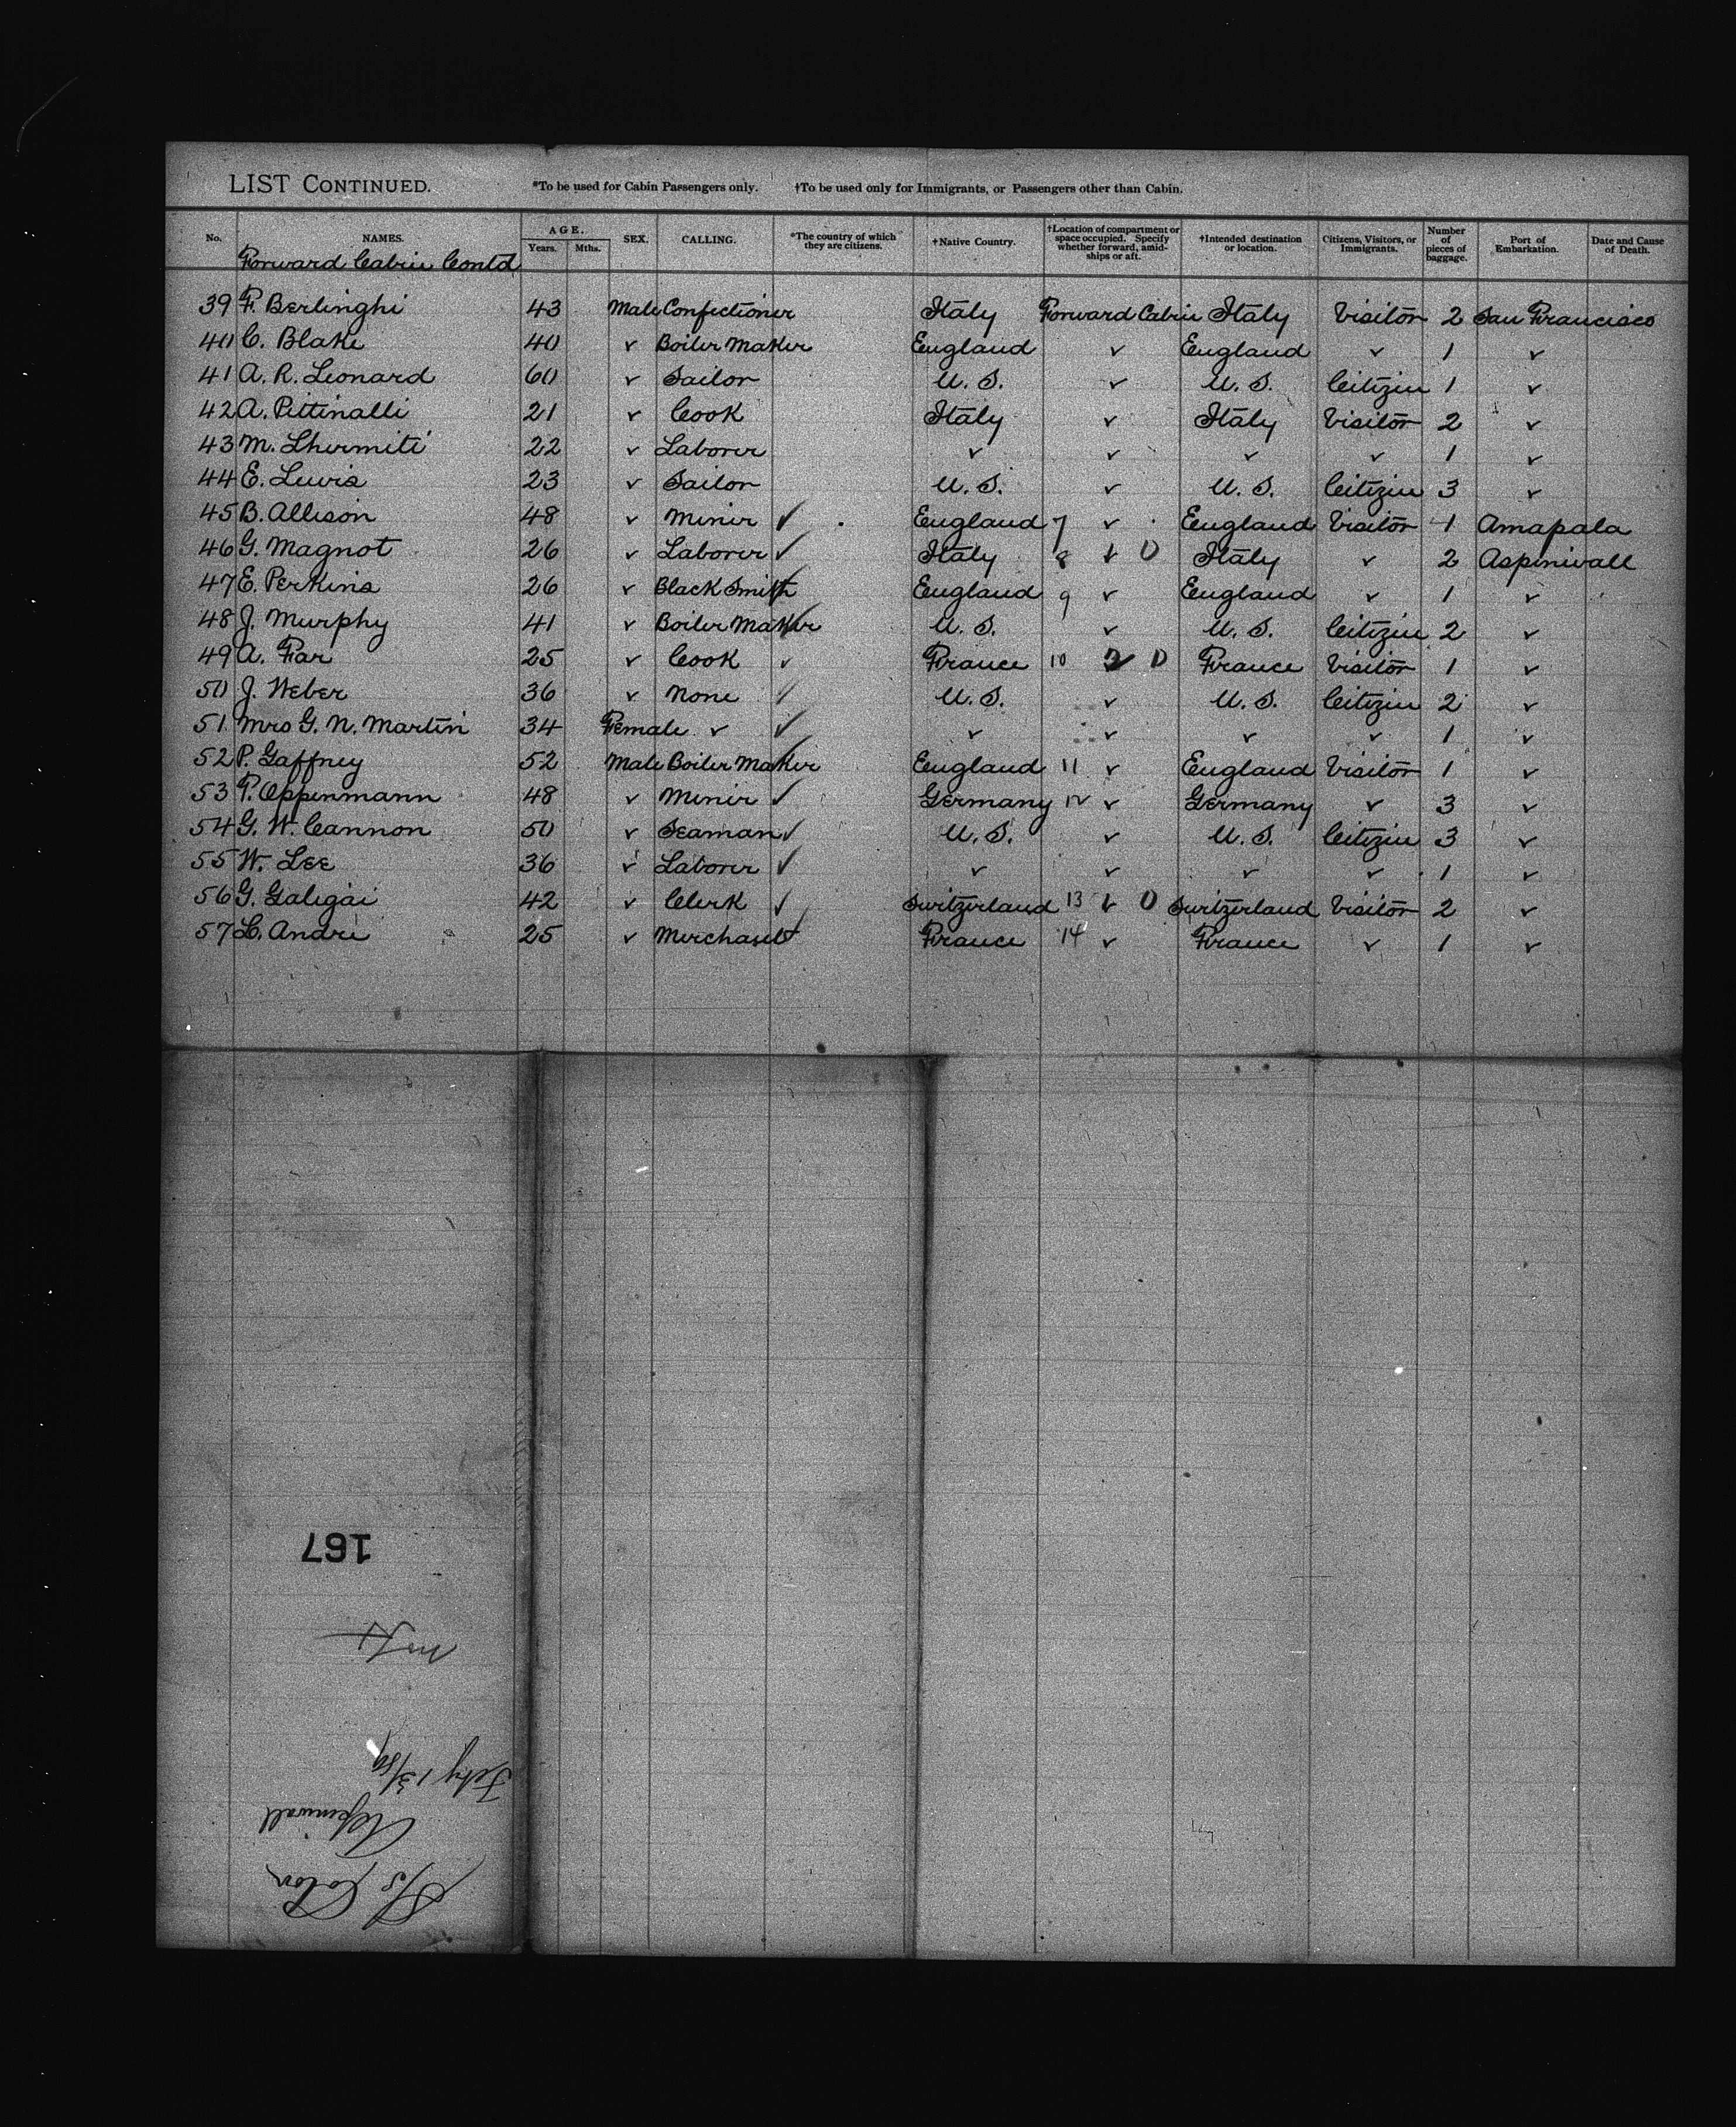 LIST CONTINUED. *To be used for Cabin Passengers only. †To be used only for Immigrants, or Passengers other than Cabin.
No. NAMES. AGE. Years. Mths. SEX. CALLING. *The country of which they are citizens. †Native Country. †Location of compartment or space occupied. Specify whether forward, amidships or aft. †Intended destination or location. Citizens, Visitors, or Immigrants. Number of pieces of baggage. Port of Embarkation. Date and Cause of Death.
Forward Cabin Contd
39 F. Berlinghi 43 Male Confectioner Italy Forward Cabin Italy Visitor 2 San Francisco
40 C. Blake 40 ✓ Boiler Maker England ✓ England ✓ 1 ✓
41 A. R. Leonard 60 ✓ Sailor U. S. ✓ U. S. Citizen 1 ✓
42 A. Pittinalli 21 ✓ Cook Italy ✓ Italy Visitor 2 ✓
43 M. Lhermité 22 ✓ Laborer ✓ ✓ ✓ ✓ 1 ✓
44 E. Lewis 23 ✓ Sailor U. S. ✓ U. S. Citizen 3 ✓
45 B. Allison 48 ✓ Miner ✓ England 7 ✓ England Visitor 1 Amapala
46 G. Magnot 26 ✓ Laborer ✓ Italy 8 ✓ 0 Italy ✓ 2 Aspinwall
47 E. Perkins 26 ✓ Black Smith ✓ England 9 ✓ England ✓ 1 ✓
48 J. Murphy 41 ✓ Boiler Maker ✓ U. S. ✓ U. S. Citizen 2 ✓
49 A. Far 25 ✓ Cook ✓ France 10 ✓ 0 France Visitor 1 ✓
50 J. Weber 36 ✓ None ✓ U. S. ✓ U. S. Citizen 2 ✓
51 Mrs G. N. Martin 34 Female ✓ ✓ ✓ ✓ ✓ ✓ 1 ✓
52 P. Gaffney 52 Male Boiler Maker ✓ England 11 ✓ England Visitor 1 ✓
53 P. Oppenmann 48 ✓ Miner ✓ Germany 12 ✓ Germany ✓ 3 ✓
54 G. W. Cannon 50 ✓ Seaman ✓ U. S. ✓ U. S. Citizen 3 ✓
55 W. Lee 36 ✓ Laborer ✓ ✓ ✓ ✓ ✓ 1 ✓
56 G. Galigai 42 ✓ Clerk ✓ Switzerland 13 ✓ 0 Switzerland Visitor 2 ✓
57 L. André 25 ✓ Merchant France 14 ✓ France ✓ 1 ✓
167
Feby 13/89
Aspinwall
S/S Colon